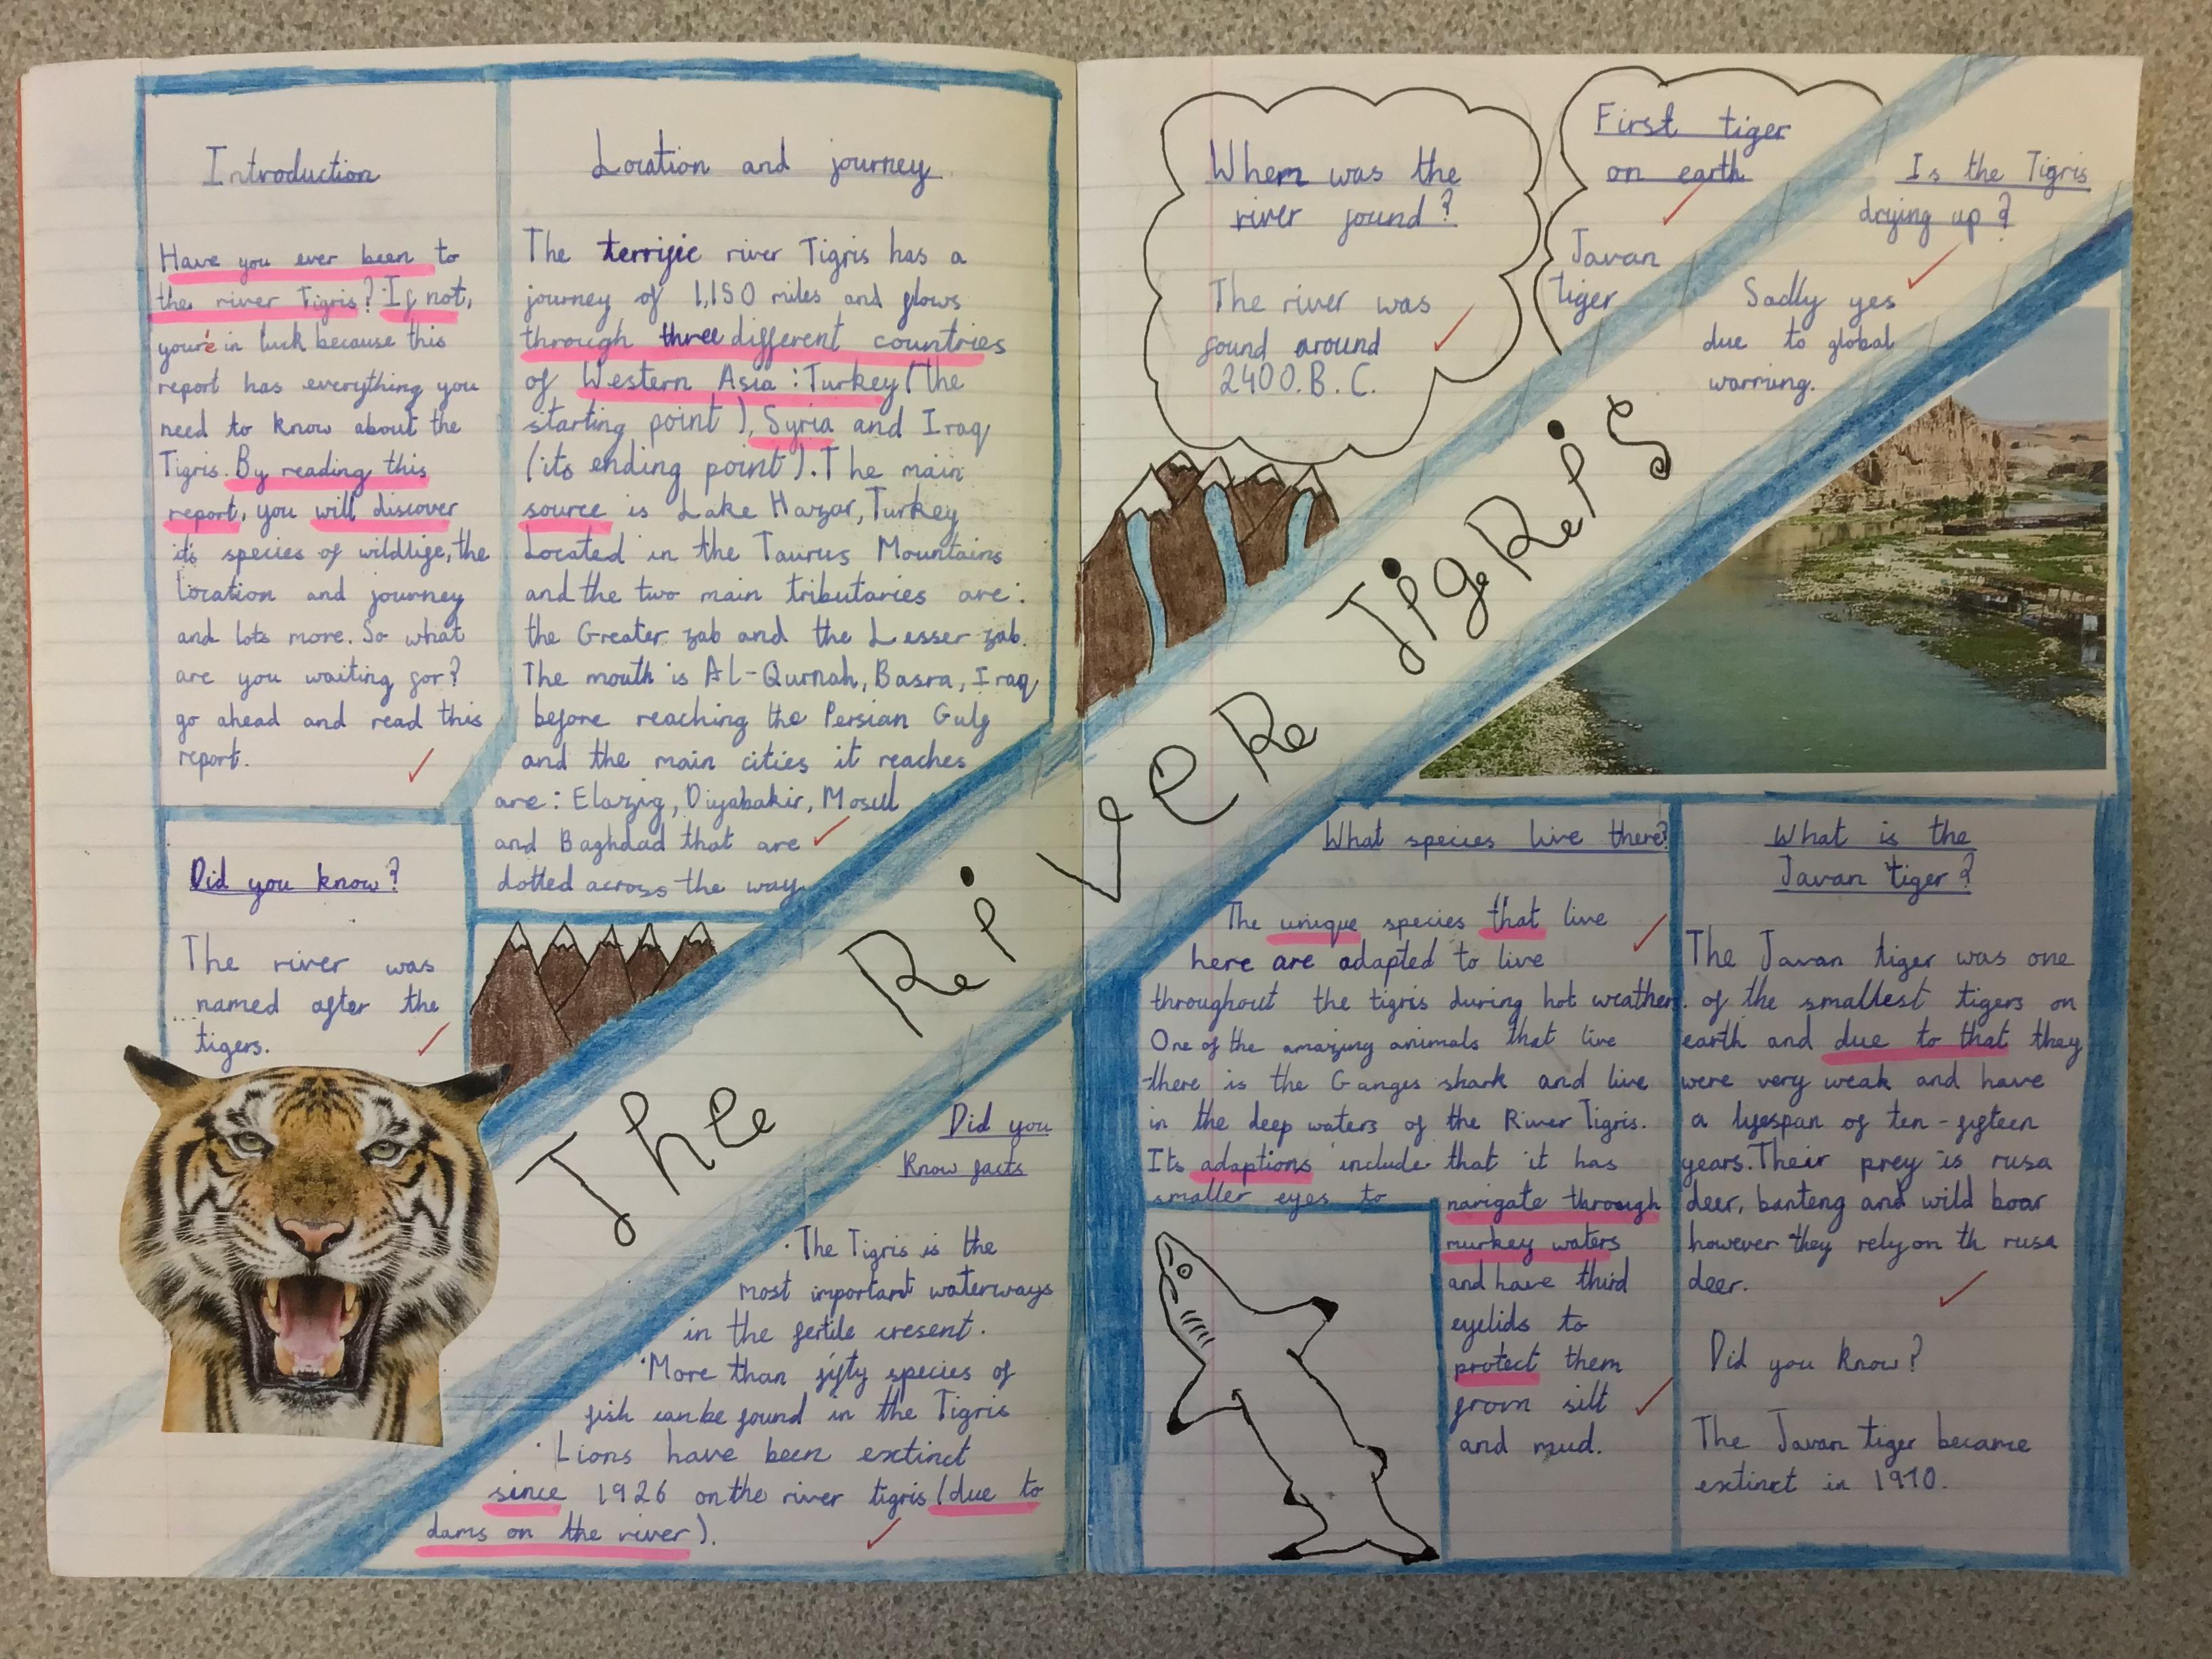 Introduction
Have you ever been to
the river Tigris? If not,
you're in luck because this
report has everything you
need to know about the
Tigris. By reading this
report, you will discover
its species of wildlife, the
location and journey
and lots more. So what
are you waiting for?
go ahead and read this
report.
Location and journey
The terrific river Tigris has a
journey of 1,150 miles and flows
through three different countries
of Western Asia : Turkey (the
starting point ), Syria and Iraq
(its ending point ). The main
source is Lake Hazar, Turkey
Located in the Taurus Mountains
and the two main tributaries are:
the Greater zab and the Lesser zab.
The mouth is Al-Qurnah, Basra, Iraq
before reaching the Persian Gulf
and the main cities it reaches
are: Elazig, Diyabakir, Mosul
and Baghdad that are
dotted across the way
Did you know?
The river was
named after the
tigers.
The River Tigris
Did you
Know facts
· The Tigris is the
most important waterways
in the fertile cresent.
· More than fifty species of
fish can be found in the Tigris
· Lions have been extinct
since 1926 on the river tigris (due to
dams on the river).
When was the
river found?
The river was
found around
2400.B.C.
First tiger
on earth
Javan
tiger
Is the Tigris
drying up?
Sadly yes
due to global
warming.
What species live there?
The unique species that live
here are adapted to live
throughout the tigris during hot weather.
One of the amazing animals that live
there is the Ganges shark and live
in the deep waters of the River Tigris.
Its adaptions include that it has
smaller eyes to
navigate through
murkey waters
and have third
eyelids to
protect them
from silt
and mud.
What is the
Javan tiger?
The Javan tiger was one
of the smallest tigers on
earth and due to that they
were very weak and have
a lifespan of ten-fifteen
years. Their prey is rusa
deer, banteng and wild boar
however they rely on th rusa
deer.
Did you know?
The Javan tiger became
extinct in 1970.